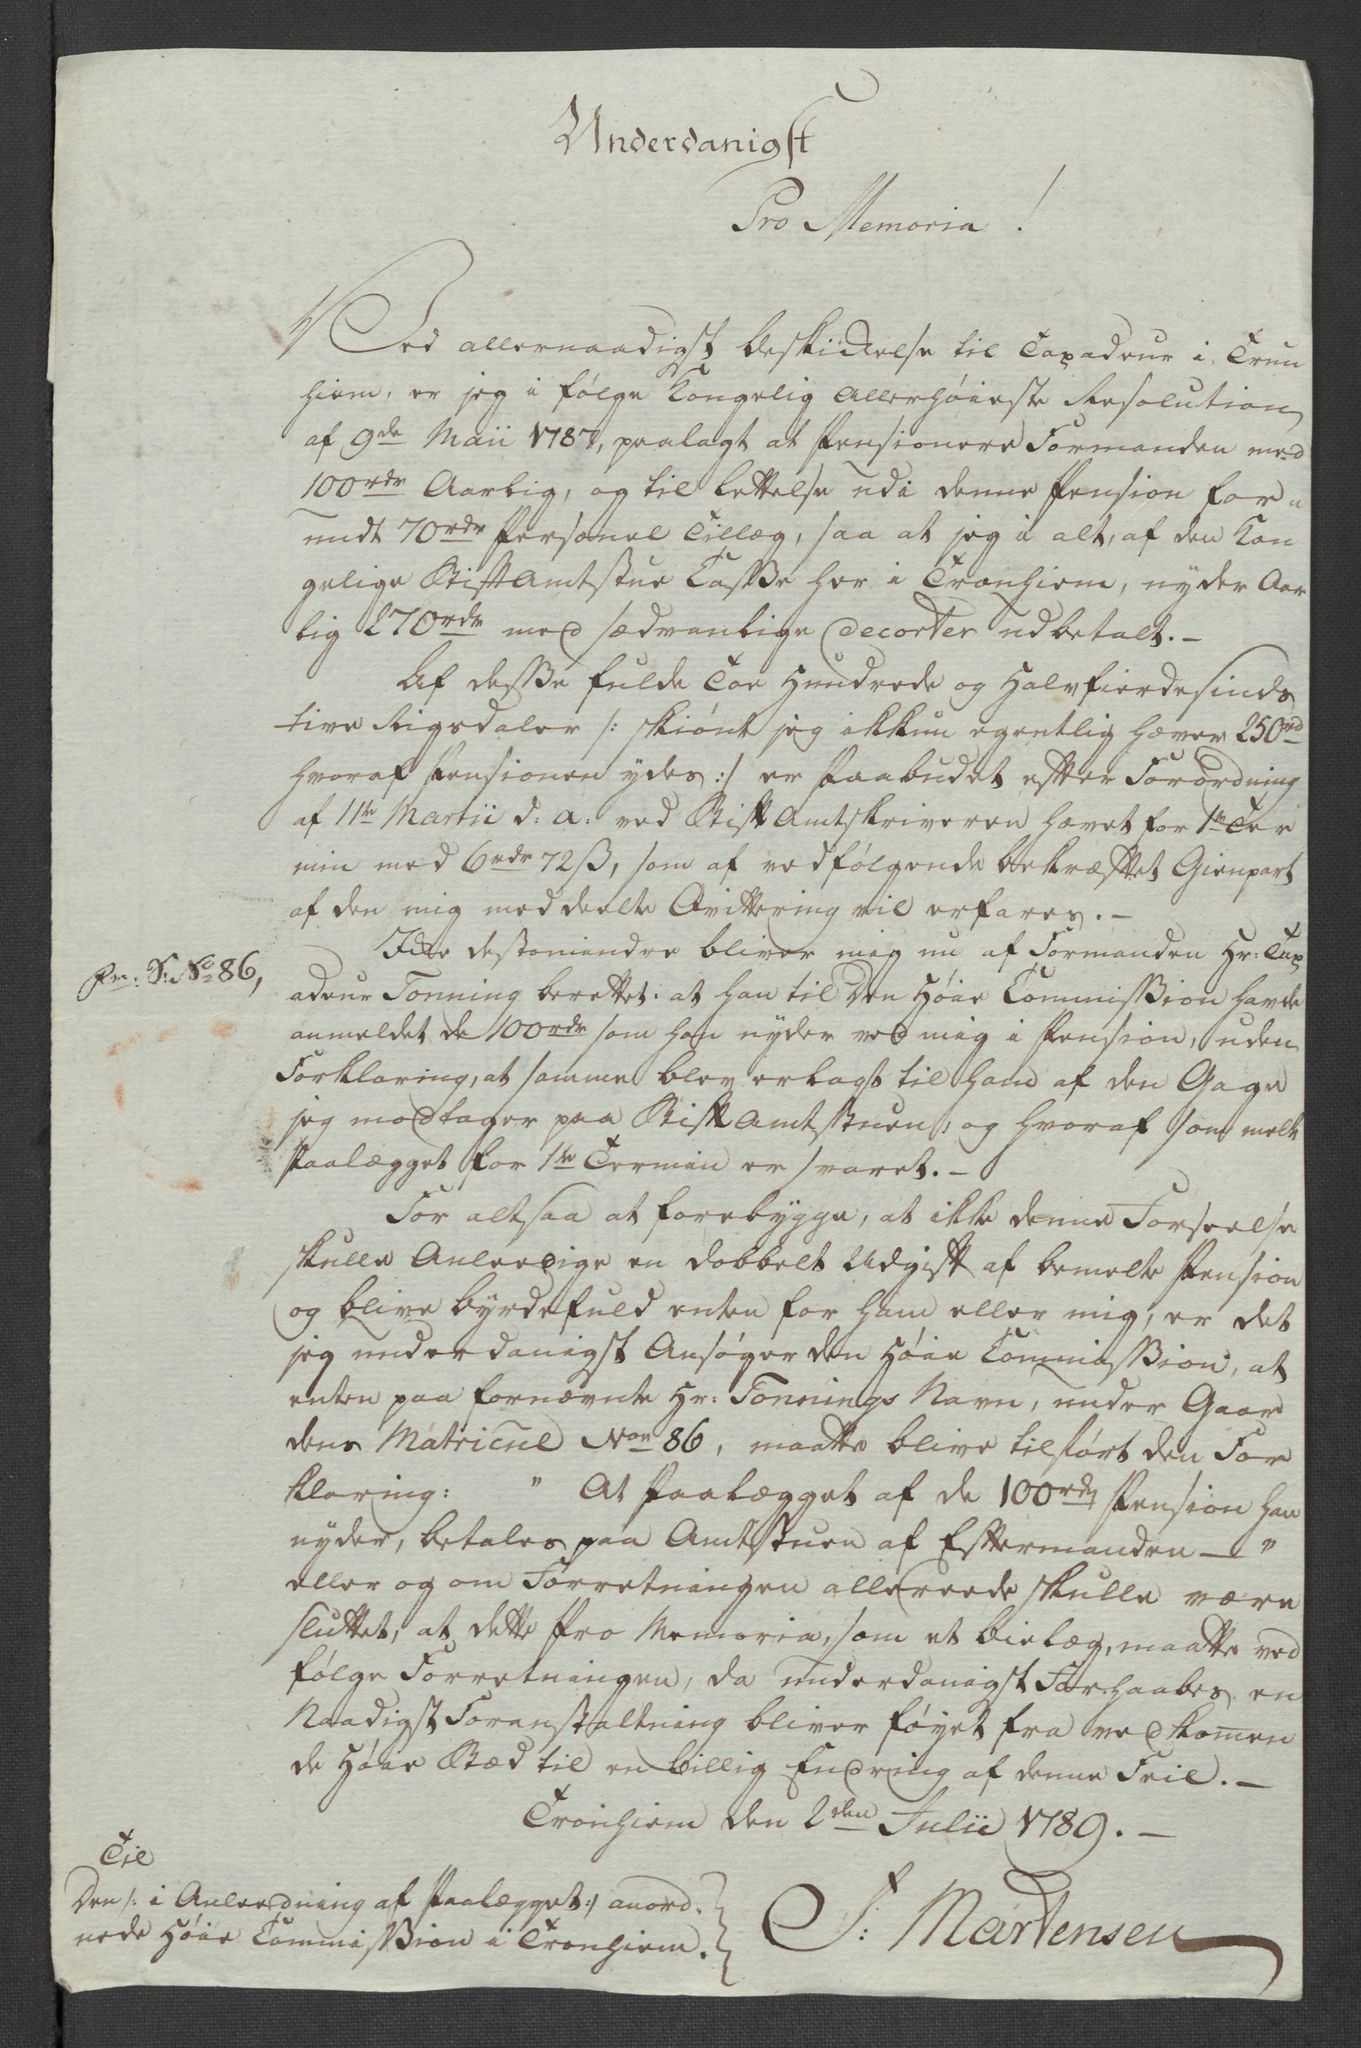 Underdanigst
Pro Memoria!
Ved allernaadigst Beskikkelse til Taxadeur i Trun
hiem, er jeg i følge Kongelig Allerhöieste Resolution
af 9de Maii 1787, paalagt at Pensionere Formanden med
100rdr Aarlig, og til Lettelse udi denne Pension for-
undt 70rdr Personel Tillæg, saa at jeg i alt, af den Kon
gelige StiftAmtstue Casse her i Tronhiem, nyder Aar
lig 270rdr med sædvanlige decorter udbetalt.-
Af desse fulde Toe Hundrede og Halvfierdesinds
tive Rigsdaler /: skiönt jeg ikkun egentlig hæver 250rd
hvoraf Pensionen ydes :/ er Paabudet efter Forordning
af 11te Martii d: a: ved StiftAmtskriveren hævet for 1te Ter
min med 6rdr 72ß, som af vedfølgende bekræftet Gienpart
af den mig meddeelte Qvittering vil erfares.-
Icke destomindre bliver mig nu af Formanden Hr: Tax
Pr: S: No 86,
adeur Tonning berettet: at han til Den Höie Commission havde
anmeldet de 100rdr som han nyder ved mig i Pension, uden
Forklaring, at samme blev erlagt til ham af den Gage
jeg modtager paa StiftAmtstuen, og hvoraf som melt
Paalægget for 1te Termin er svaret.-
For altsaa at forebygge, at ikke denne Forseelse
skulle Anleedige en dobbelt Udgift af bemelte Pension
og blive byrdefuld enten for ham eller mig, er det
jeg underdanigst Ansöger den Höie Commission, at
enten paa fornævnte Hr: Tonnings Navn, under Gaar
dens Matricul Non 86, maatte blive tilført den For
klaring: " At Paalægget af de 100rdr Pension han
nyder, betales paa Amtstuen af Eftermanden — "
eller og om Forretningen allereede skulle være
sluttet, at dette Pro Memoria, som et Bielæg, maatte ved
følge Forretningen, da underdanigst Forhaabes en
Naadigst Foranstaltning bliver föyet fra vedkommen
de Höie Stæd til en billig Endring af denne Feil.-
Tronhiem den 2den Julii 1789.-
Til
Den /: i Anleedning af Paalægget :/ anord-
nede Höie Commission i Tronhiem.
J: Mårtensen